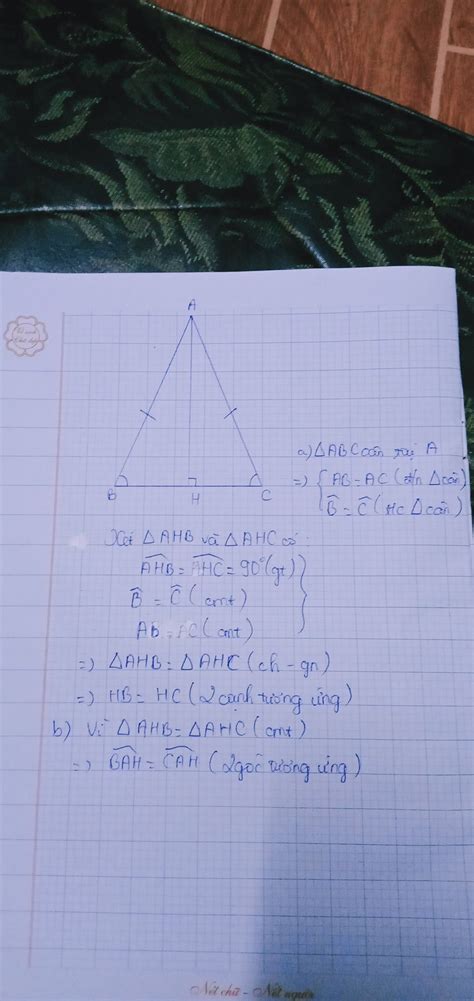 A
B
H
C
a) △ABC cân tại A
=) { AB = AC (đ/n △cân)
B̂ = Ĉ (t/c △cân)
Xét △AHB và △AHC có:
AHB = AHC = 90° (gt)
B̂ = Ĉ (cmt)
AB = AC (cmt)
=) △AHB = △AHC (ch - gn)
=) HB = HC (2 cạnh tương ứng)
b) Vì △AHB = △AHC (cmt)
=) BAH = CAH (2 góc tương ứng)
Nét chữ - Nết người